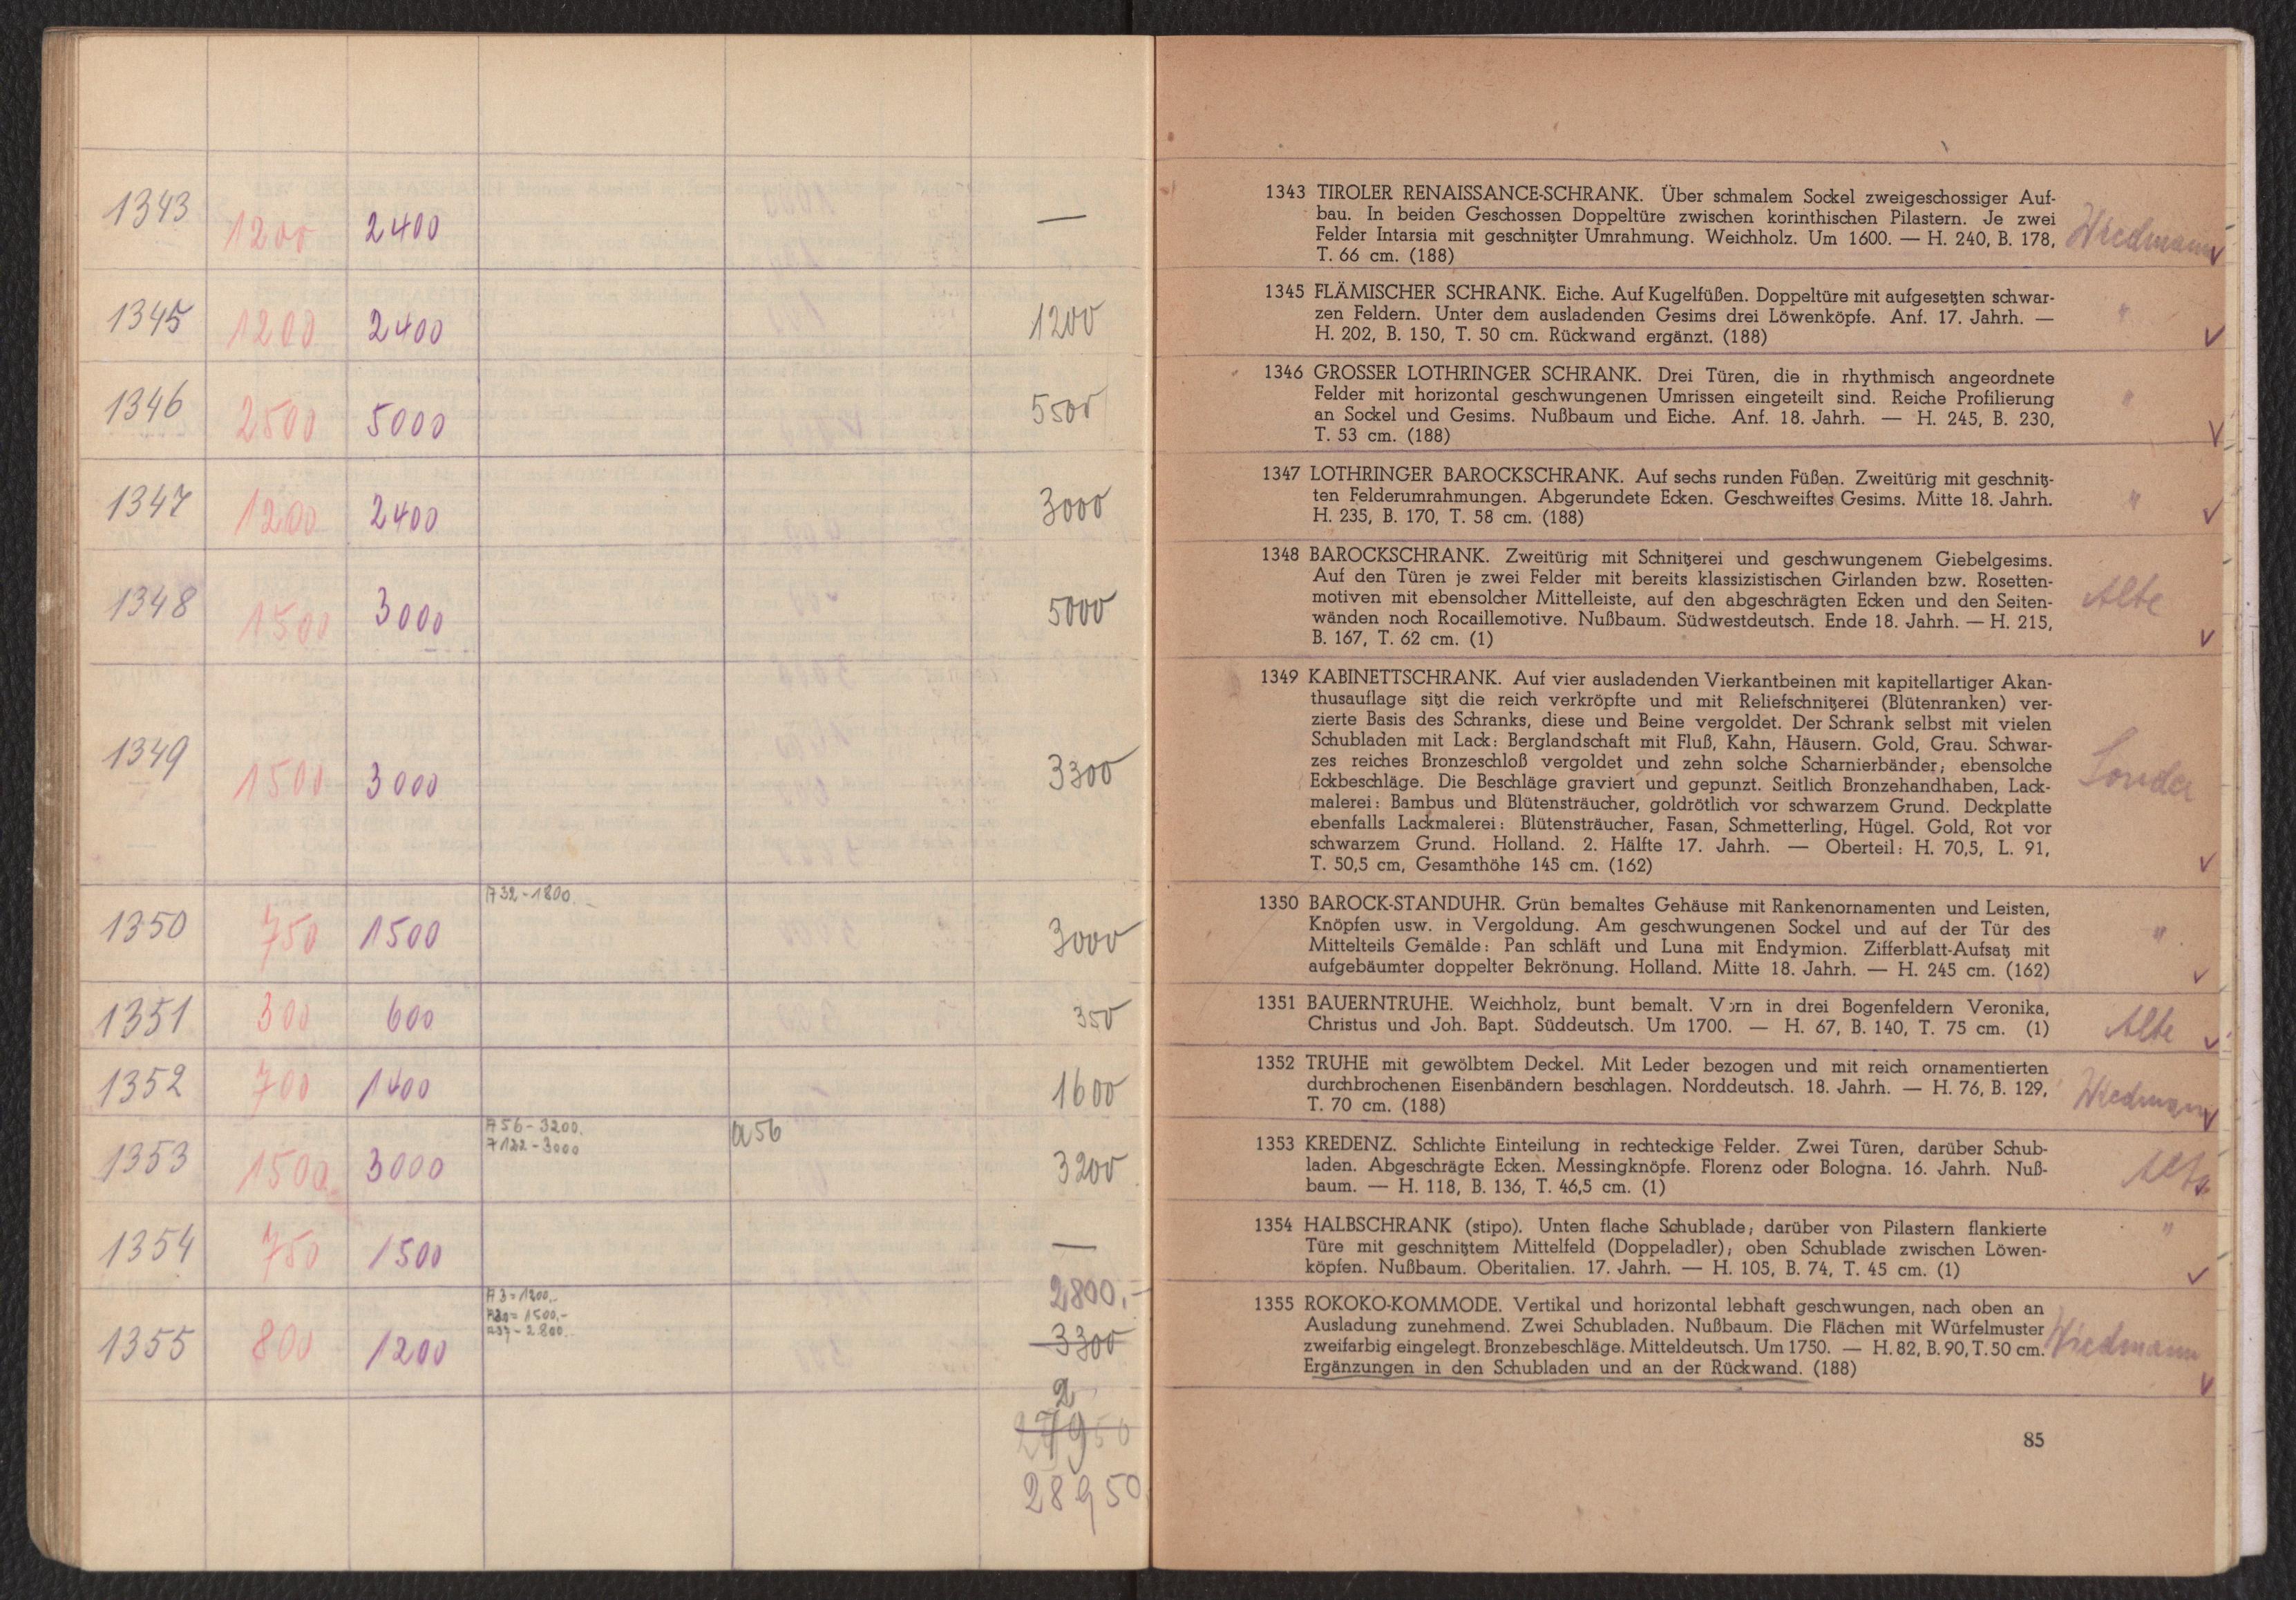 1343 1200 2400 —
1345 1200 2400 1200
1346 2500 5000 5500
1347 1200 2400 3000
1348 1500 3000 5000
1349 1500 3000 3300
A 32 - 1800.
1350 750 1500 3000
1351 300 600 350
1352 700 1400 1600
A 56 - 3200. a 56
A 122 - 3000
1353 1500 3000 3200
1354 750 1500 —
A 3 = 1200.- 2800.-
A 20 = 1500,-
A 37 - 2800.-
1355 800 1200 3300
2
27950
28950
1343 TIROLER RENAISSANCE-SCHRANK. Über schmalem Sockel zweigeschossiger Auf-
bau. In beiden Geschossen Doppeltüre zwischen korinthischen Pilastern. Je zwei
Felder Intarsia mit geschnitzter Umrahmung. Weichholz. Um 1600. — H. 240, B. 178, Wiedmann
T. 66 cm. (188)
1345 FLÄMISCHER SCHRANK. Eiche. Auf Kugelfüßen. Doppeltüre mit aufgesetzten schwar-
zen Feldern. Unter dem ausladenden Gesims drei Löwenköpfe. Anf. 17. Jahrh. — "
H. 202, B. 150, T. 50 cm. Rückwand ergänzt. (188)
1346 GROSSER LOTHRINGER SCHRANK. Drei Türen, die in rhythmisch angeordnete
Felder mit horizontal geschwungenen Umrissen eingeteilt sind. Reiche Profilierung "
an Sockel und Gesims. Nußbaum und Eiche. Anf. 18. Jahrh. — H. 245, B. 230,
T. 53 cm. (188)
1347 LOTHRINGER BAROCKSCHRANK. Auf sechs runden Füßen. Zweitürig mit geschnitz-
ten Felderumrahmungen. Abgerundete Ecken. Geschweiftes Gesims. Mitte 18. Jahrh. "
H. 235, B. 170, T. 58 cm. (188)
1348 BAROCKSCHRANK. Zweitürig mit Schnitzerei und geschwungenem Giebelgesims.
Auf den Türen je zwei Felder mit bereits klassizistischen Girlanden bzw. Rosetten-
motiven mit ebensolcher Mittelleiste, auf den abgeschrägten Ecken und den Seiten- Albe
wänden noch Rocaillemotive. Nußbaum. Südwestdeutsch. Ende 18. Jahrh. — H. 215,
B. 167, T. 62 cm. (1)
1349 KABINETTSCHRANK. Auf vier ausladenden Vierkantbeinen mit kapitellartiger Akan-
thusauflage sitzt die reich verkröpfte und mit Reliefschnitzerei (Blütenranken) ver-
zierte Basis des Schranks, diese und Beine vergoldet. Der Schrank selbst mit vielen
Schubladen mit Lack: Berglandschaft mit Fluß, Kahn, Häusern. Gold, Grau. Schwar-
zes reiches Bronzeschloß vergoldet und zehn solche Scharnierbänder; ebensolche
Eckbeschläge. Die Beschläge graviert und gepunzt. Seitlich Bronzehandhaben, Lack-
malerei: Bambus und Blütensträucher, goldrötlich vor schwarzem Grund. Deckplatte
ebenfalls Lackmalerei: Blütensträucher, Fasan, Schmetterling, Hügel. Gold, Rot vor
schwarzem Grund. Holland. 2. Hälfte 17. Jahrh. — Oberteil: H. 70,5, L. 91,
T. 50,5 cm, Gesamthöhe 145 cm. (162)
1350 BAROCK-STANDUHR. Grün bemaltes Gehäuse mit Rankenornamenten und Leisten,
Knöpfen usw. in Vergoldung. Am geschwungenen Sockel und auf der Tür des "
Mittelteils Gemälde: Pan schläft und Luna mit Endymion. Zifferblatt-Aufsatz mit
aufgebäumter doppelter Bekrönung. Holland. Mitte 18. Jahrh. — H. 245 cm. (162)
1351 BAUERNTRUHE. Weichholz, bunt bemalt. Vorn in drei Bogenfeldern Veronika,
Christus und Joh. Bapt. Süddeutsch. Um 1700. — H. 67, B. 140, T. 75 cm. (1) Albe
1352 TRUHE mit gewölbtem Deckel. Mit Leder bezogen und mit reich ornamentierten
durchbrochenen Eisenbändern beschlagen. Norddeutsch. 18. Jahrh. — H. 76, B. 129, Wiedmann
T. 70 cm. (188)
1353 KREDENZ. Schlichte Einteilung in rechteckige Felder. Zwei Türen, darüber Schub-
laden. Abgeschrägte Ecken. Messingknöpfe. Florenz oder Bologna. 16. Jahrh. Nuß- Albe
baum. — H. 118, B. 136, T. 46,5 cm. (1)
1354 HALBSCHRANK (stipo). Unten flache Schublade; darüber von Pilastern flankierte "
Türe mit geschnitztem Mittelfeld (Doppeladler); oben Schublade zwischen Löwen-
köpfen. Nußbaum. Oberitalien. 17. Jahrh. — H. 105, B. 74, T. 45 cm. (1)
1355 ROKOKO-KOMMODE. Vertikal und horizontal lebhaft geschwungen, nach oben an
Ausladung zunehmend. Zwei Schubladen. Nußbaum. Die Flächen mit Würfelmuster
zweifarbig eingelegt. Bronzebeschläge. Mitteldeutsch. Um 1750. — H. 82, B. 90, T. 50 cm. Wiedmann
Ergänzungen in den Schubladen und an der Rückwand. (188)
85